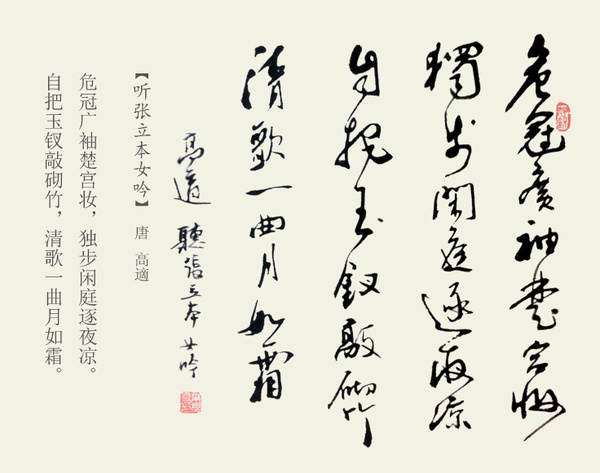 危冠廣袖楚宮妝
獨步閑庭逐夜涼
自把玉釵敲砌竹
清歌一曲月如霜
高適 聽張立本女吟
【听张立本女吟】 唐 高適
危冠广袖楚宫妆，独步闲庭逐夜凉。
自把玉钗敲砌竹，清歌一曲月如霜。